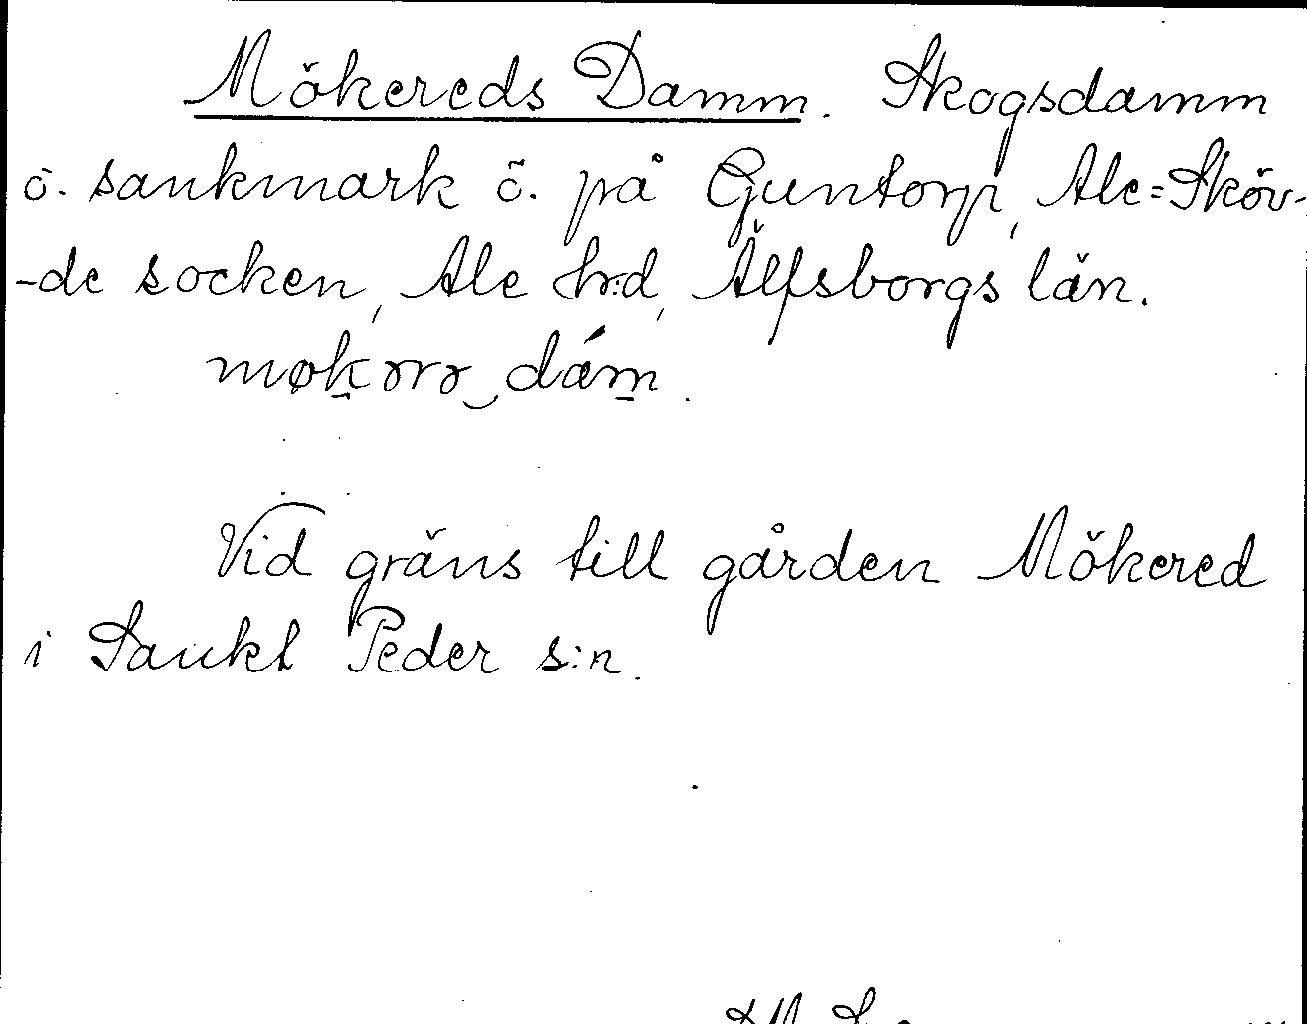 Mökereds Damm. Skogsdamm
o. sankmark ö. på Guntorp, Ale=Sköv-
-de socken, Ale h:d, Älfsborgs län.
møkɤrɤ‿dám.
Vid gräns till gården Mökered
i Sankt Peder s:n.